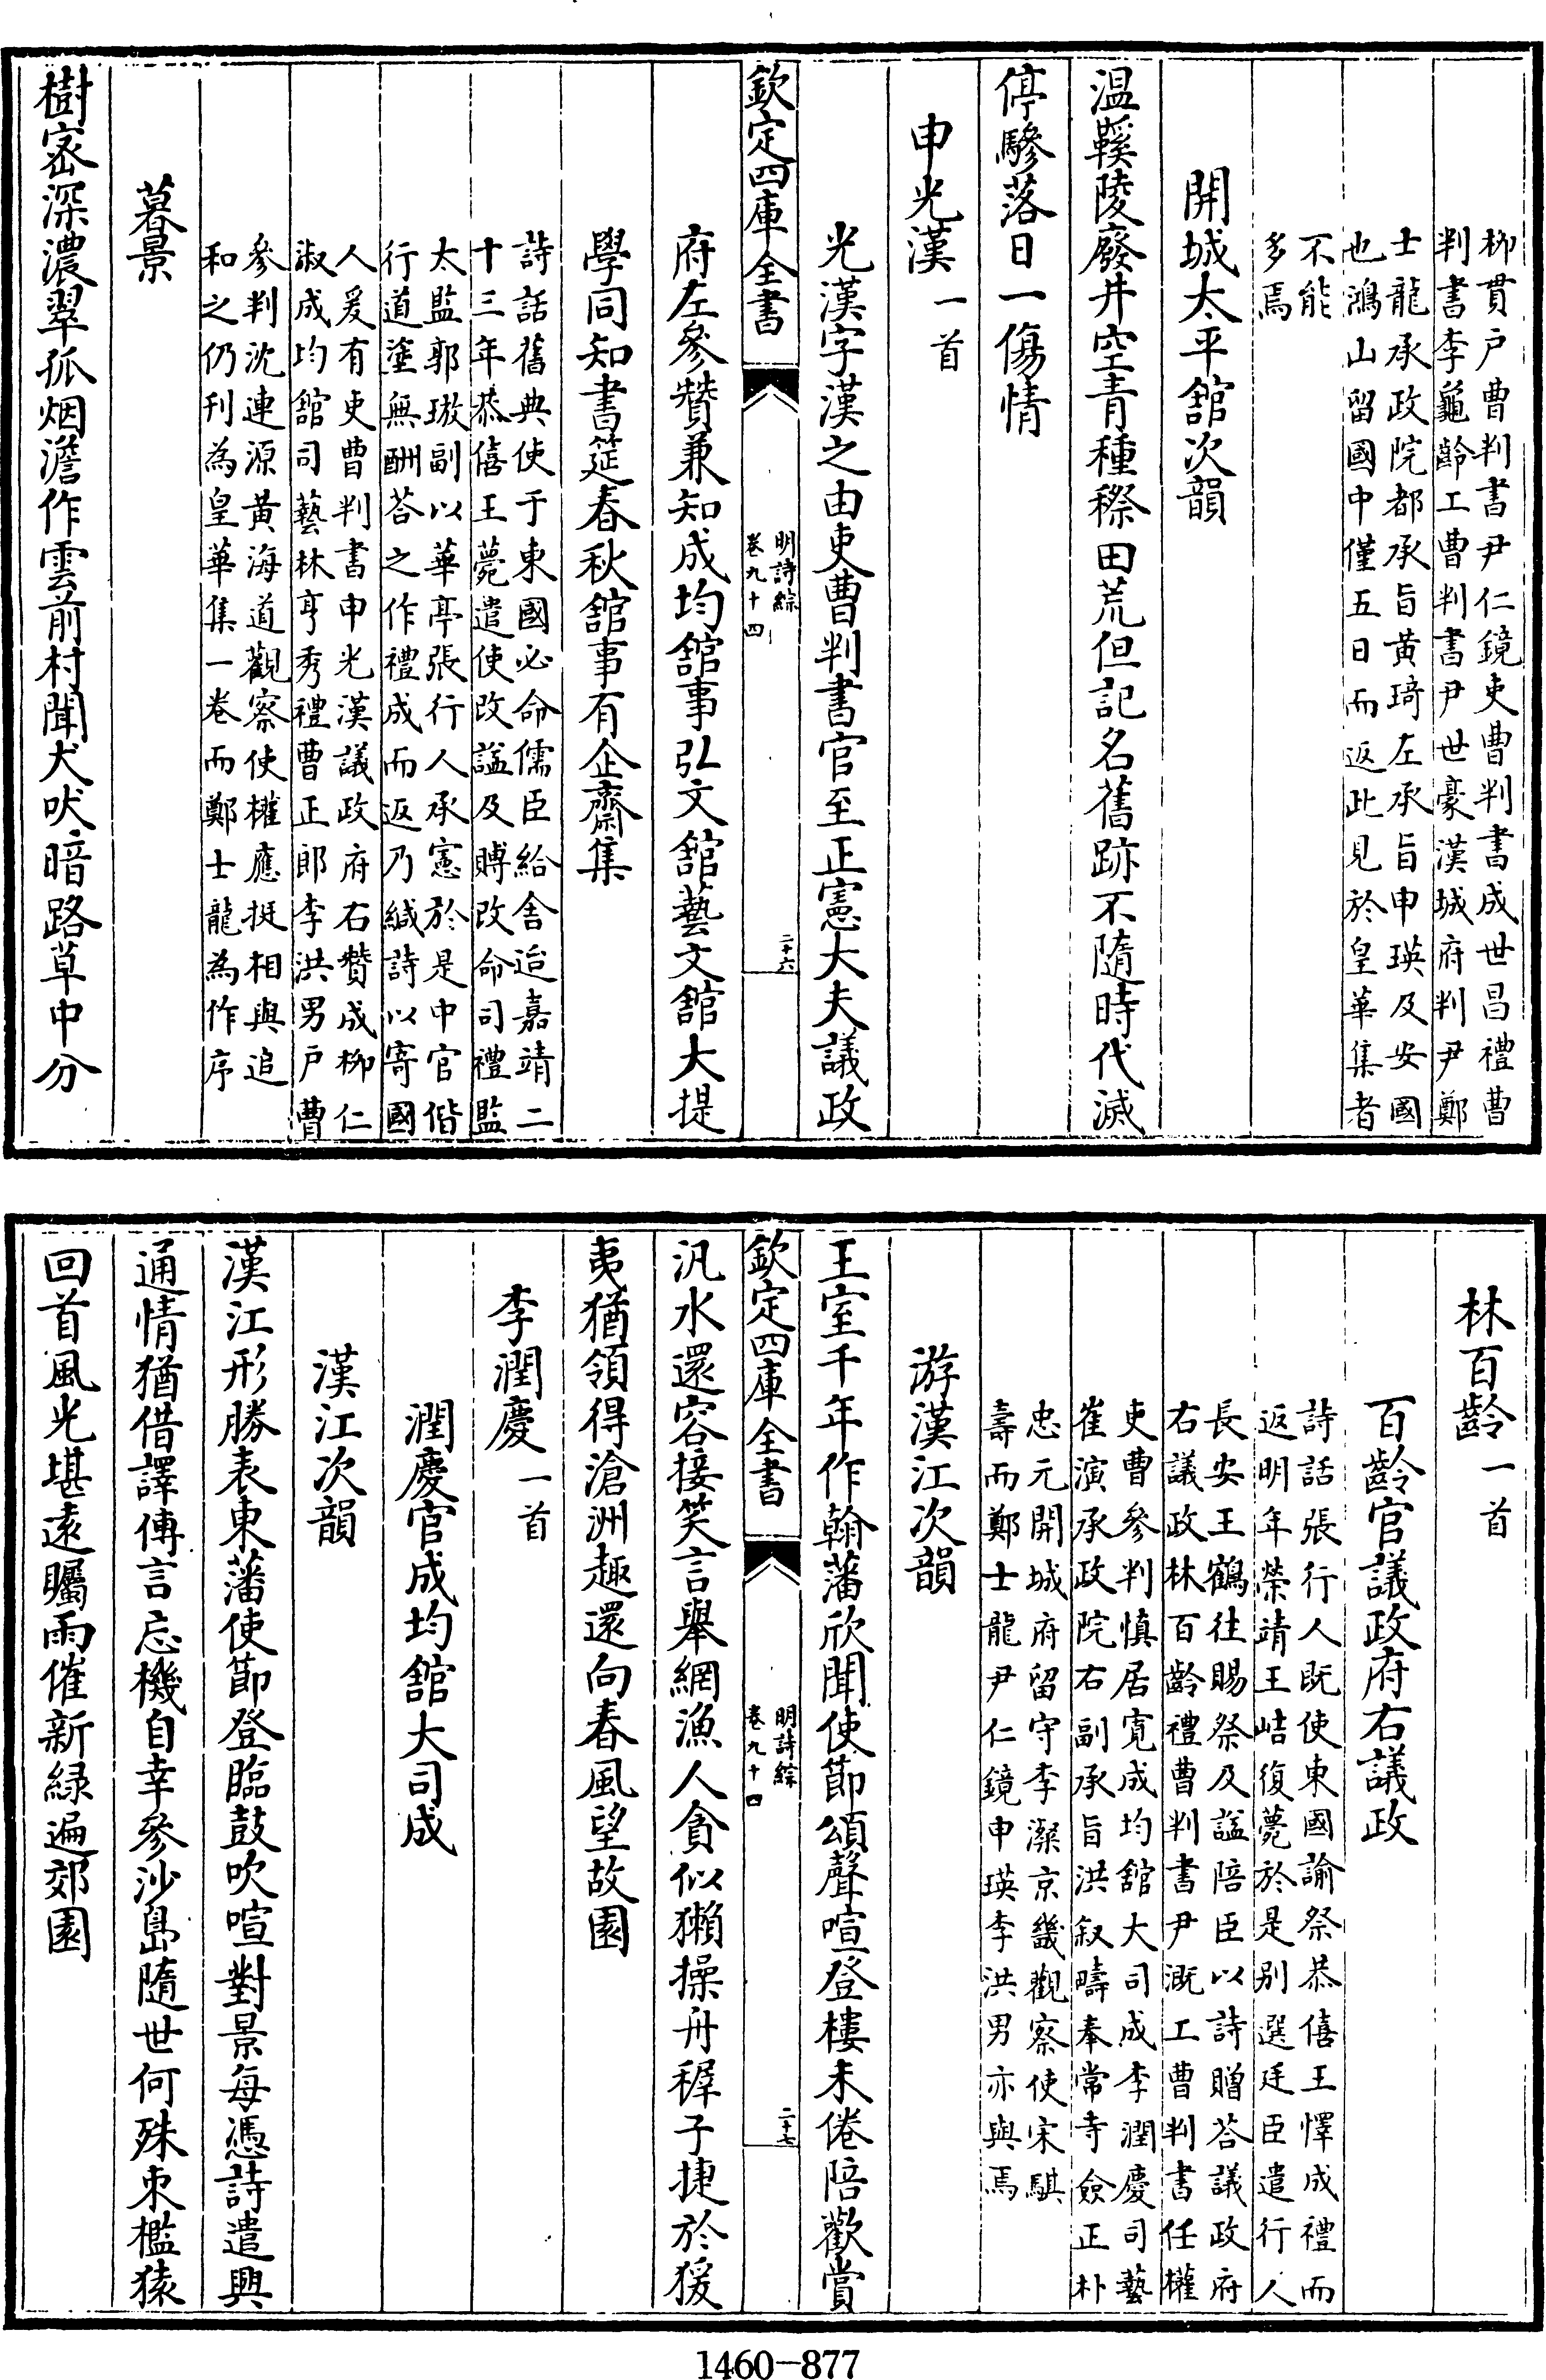 柳貫户曹判書尹仁鏡吏曹判書成世昌禮曹
判書李龜齡工曹判書尹世豪漢城府判尹鄭
士龍承政院都承旨黄琦左承旨申瑛及安國
也鴻山留國中僅五日而返此見於皇華集者
不能
多焉
開城太平舘次韻
温鞵陵廢井空青種穄田荒但記名舊跡不隨時代滅
停驂落日一傷情
申光漢一首
光漢字漢之由吏曹判書官至正憲大夫議政
欽定四庫全書
明詩綜
卷九十四
二十六
府左參贊兼知成均舘事弘文舘藝文舘大提
學同知書筵春秋舘事有企齋集
詩話舊典使于東國必命儒臣給舍迨嘉靖二
十三年恭僖王薨遣使改諡及賻改命司禮監
太監郭璈副以華亭張行人承憲於是中官偕
行道塗無酬荅之作禮成而返乃緘詩以寄國
人爰有吏曹判書申光漢議政府右贊成柳仁
淑成均舘司藝林亨秀禮曹正郎李洪男户曹
參判沈連源黄海道觀察使權應挺相與追
和之仍刊為皇華集一卷而鄭士龍為作序
暮景
樹密深濃翠孤烟澹作雲前村聞犬吠暗路草中分
林百齡一首
百齡官議政府右議政
詩話張行人既使東國諭祭恭僖王懌成禮而
返明年榮靖王峼復薨於是别選廷臣遣行人
長安王鶴往賜祭及諡陪臣以詩贈荅議政府
右議政林百齡禮曹判書尹溉工曹判書任權
吏曹參判慎居寛成均舘大司成李潤慶司藝
崔演承政院右副承旨洪叙疇奉常寺僉正朴
忠元開城府留守李瀿京畿觀察使宋騏
壽而鄭士龍尹仁鏡申瑛李洪男亦與焉
游漢江次韻
王室千年作翰藩欣聞使節頌聲喧登樓未倦陪歡賞
欽定四庫全書
明詩綜
卷九十四
二十七
汎水還容接笑言舉網漁人貪似獺操舟稺子捷於猨
夷猶領得滄洲趣還向春風望故園
李潤慶一首
潤慶官成均舘大司成
漢江次韻
漢江形勝表東藩使節登臨鼓吹喧對景每憑詩遣興
通情猶借譯傳言忘機自幸參沙島隨世何殊束檻猿
回首風光堪逺矚雨催新緑遍郊園
1460-877